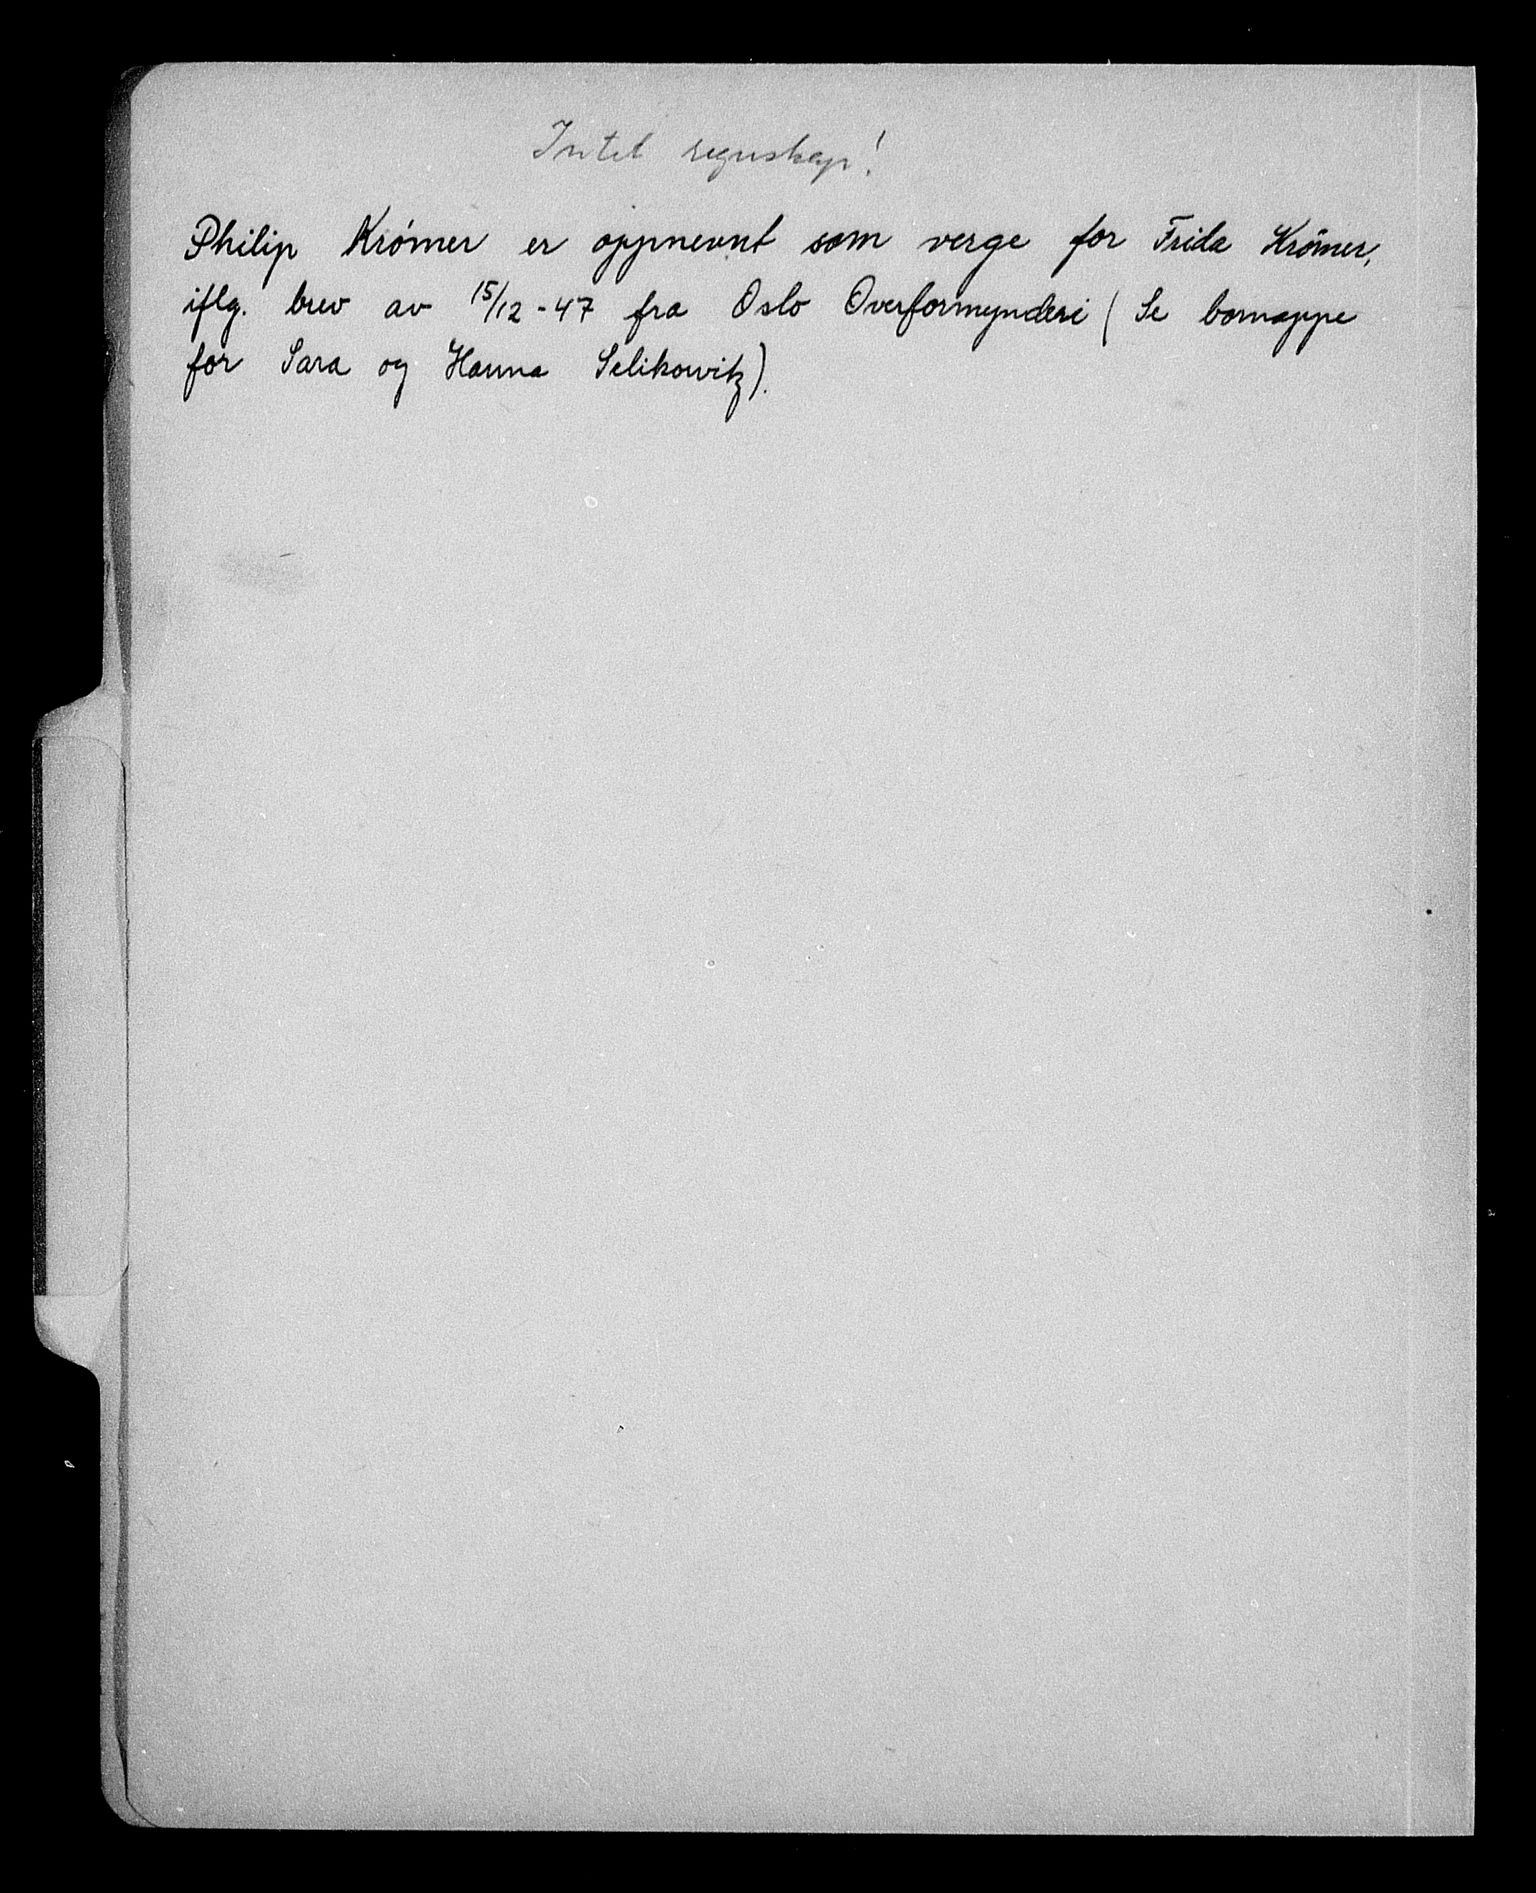 Intet regnskap!
Philip Krømer er oppnevnt som verge for Frida Krömer,
iflg. brev av 15/12-47 fra Oslo Overformynderi (Se bomappe
for Sara og Hanna Selikowitz).